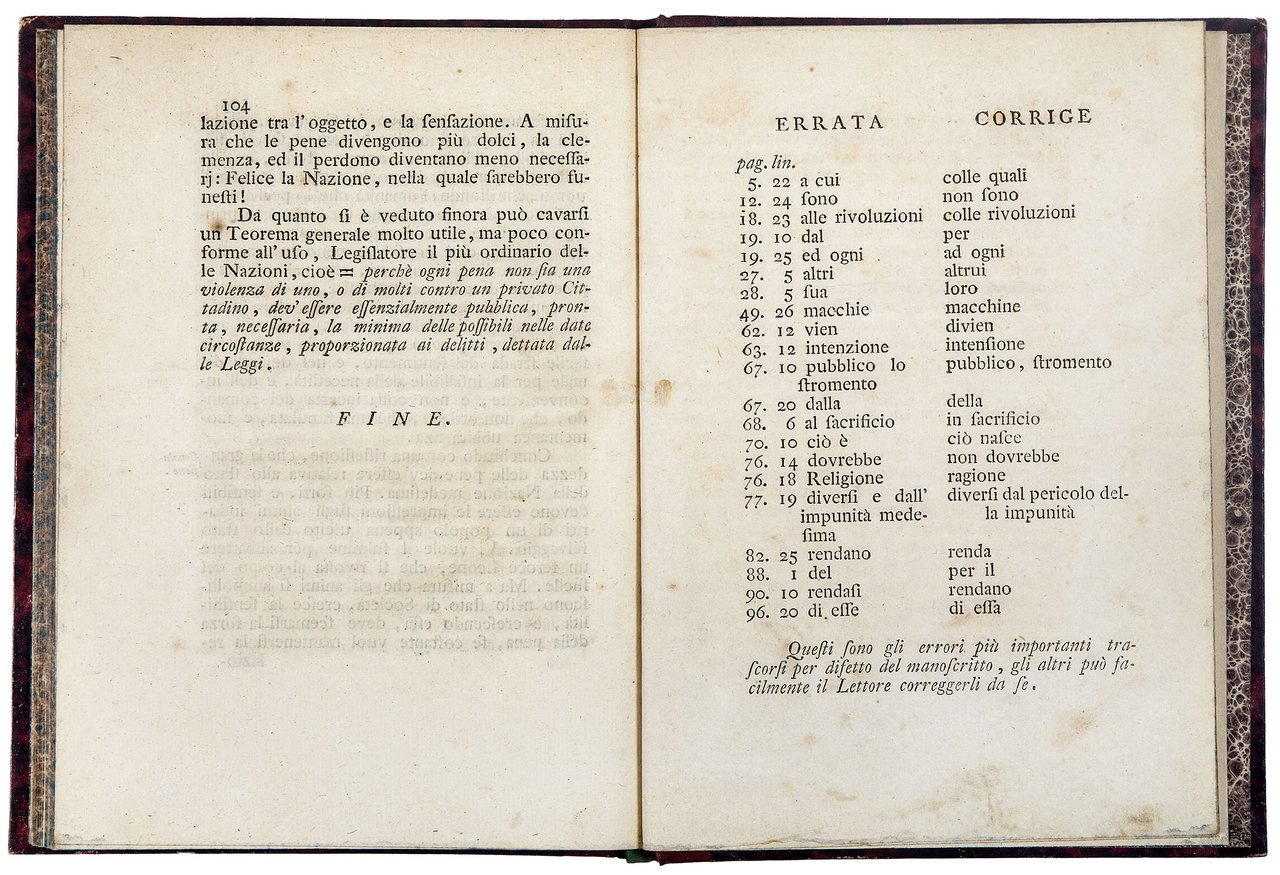 104
lazione tra l'oggetto, e la ſenſazione. A miſu-
ra che le pene divengono più dolci, la cle-
menza, ed il perdono diventano meno neceſſa-
rj: Felice la Nazione, nella quale ſarebbero fu-
neſti!
Da quanto ſi è veduto finora può cavarſi
un Teorema generale molto utile, ma poco con-
forme all'uſo, Legiſlatore il più ordinario del-
le Nazioni, cioè = perchè ogni pena non ſia una
violenza di uno, o di molti contro un privato Cit-
tadino, dev'eſſere eſſenzialmente pubblica, pron-
ta, neceſſaria, la minima delle poſſibili nelle date
circoſtanze, proporzionata ai delitti, dettata dal-
le Leggi.
FINE.
ERRATA CORRIGE
pag. lin.
5. 22 a cui colle quali
12. 24 ſono non ſono
18. 23 alle rivoluzioni colle rivoluzioni
19. 10 dal per
19. 25 ed ogni ad ogni
27. 5 altri altrui
28. 5 ſua loro
49. 26 macchie macchine
62. 12 vien divien
63. 12 intenzione intenſione
67. 10 pubblico lo pubblico, ſtromento
ſtromento
67. 20 dalla della
68. 6 al ſacrificio in ſacrificio
70. 10 ciò è ciò naſce
76. 14 dovrebbe non dovrebbe
76. 18 Religione ragione
77. 19 diverſi e dall' diverſi dal pericolo del-
impunità mede- la impunità
ſima
82. 25 rendano renda
88. 1 del per il
90. 10 rendaſi rendano
96. 20 di eſſe di eſſa
Queſti ſono gli errori più importanti tra-
ſcorſi per difetto del manoſcritto, gli altri può fa-
cilmente il Lettore correggerli da ſe.